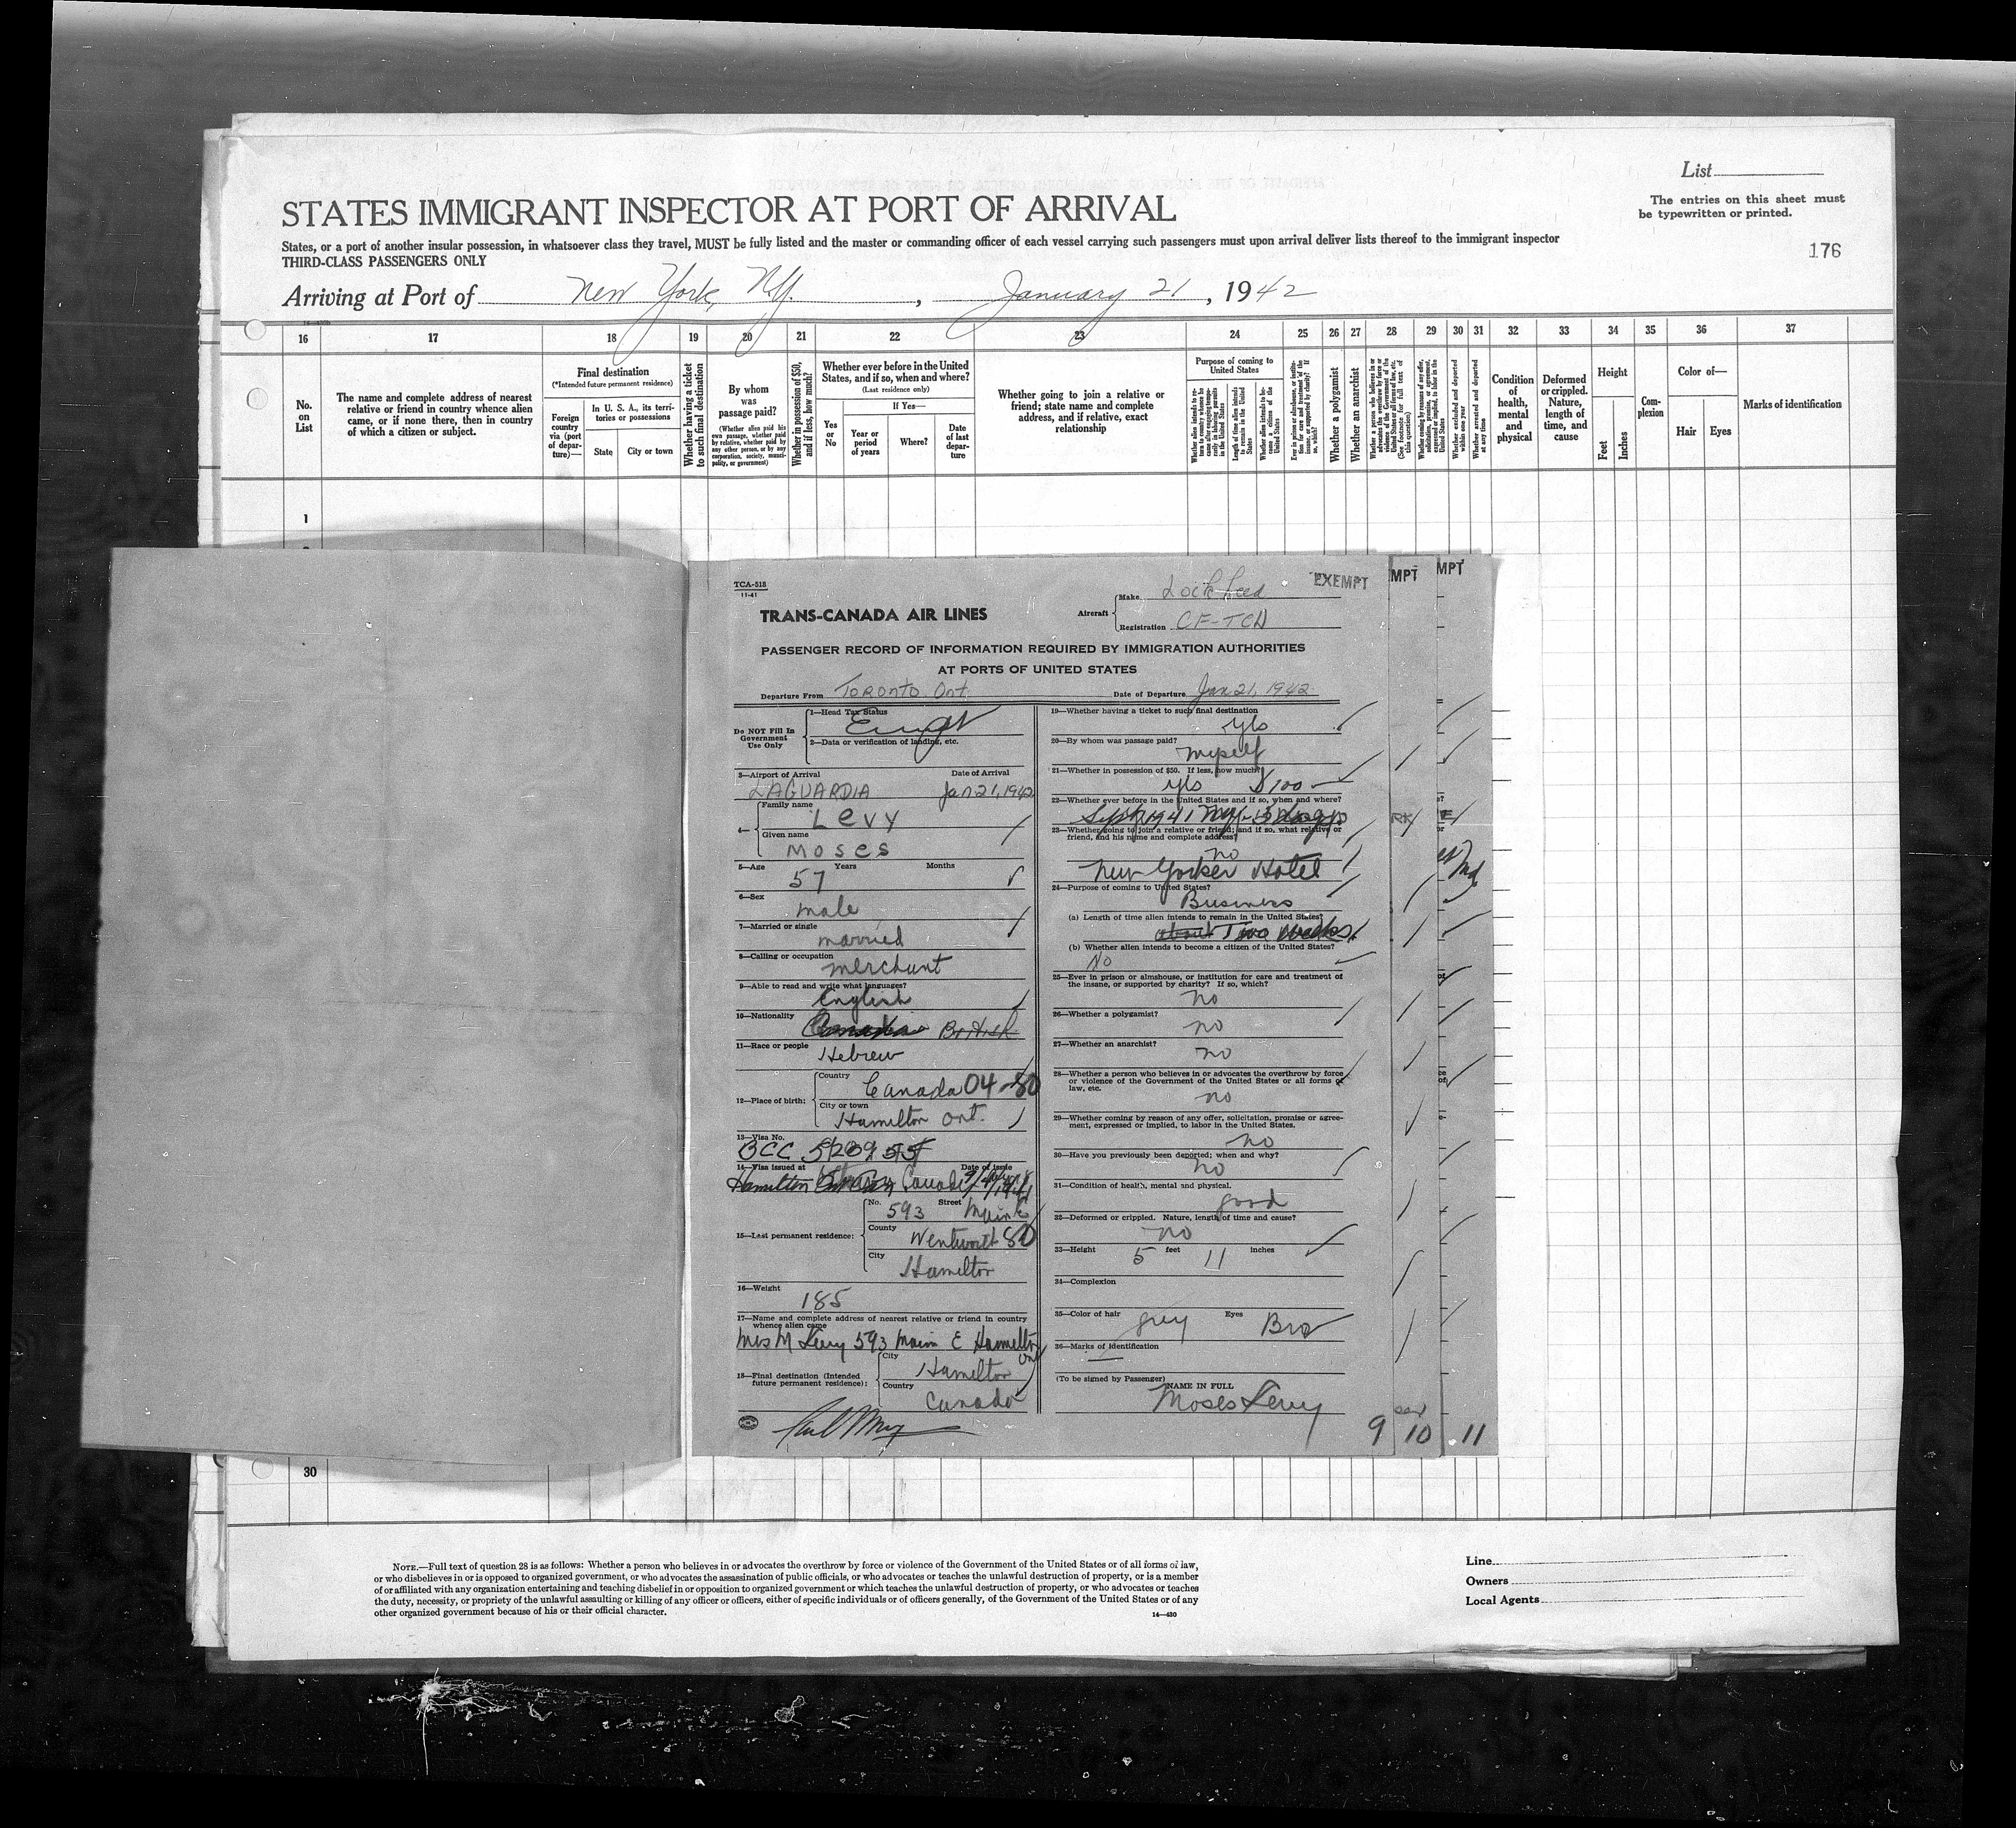 List
The entries on this sheet must
be typewritten or printed.
176
STATES IMMIGRANT INSPECTOR AT PORT OF ARRIVAL
States, or a port of another insular possession, in whatsoever class they travel, MUST be fully listed and the master or commanding officer of each vessel carrying such passengers must upon arrival deliver lists thereof to the immigrant inspector
THIRD-CLASS PASSENGERS ONLY
Arriving at Port of New York, N.Y. , January 21 , 1942
16 17 18 19 20 21 22 23 24 25 26 27 28 29 30 31 32 33 34 35 36 37
No.
on
List
The name and complete address of nearest
relative or friend in country whence alien
came, or if none there, then in country
of which a citizen or subject.
Final destination
(*Intended future permanent residence)
Foreign
country
via (port
of depar-
ture)—
In U. S. A., its terri-
tories or possessions
State
City or town
Whether having a ticket
to such final destination
By whom
was
passage paid?
(Whether alien paid his
own passage, whether paid
by relative, whether paid by
any other person, or by any
corporation, society, munici-
pality, or government)
Whether in possession of $50,
and if less, how much?
Whether ever before in the United
States, and if so, when and where?
(Last residence only)
Yes
or
No
If Yes—
Year or
period
of years
Where?
Date
of last
depar-
ture
Whether going to join a relative or
friend; state name and complete
address, and if relative, exact
relationship
Purpose of coming to
United States
Length of time alien intends
to remain in the United
States
Whether alien intends to be-
come a citizen of the
United States
Whether a polygamist
Whether an anarchist
Whether arrested and deported
at any time
Condition
of
health,
mental
and
physical
Deformed
or crippled.
Nature,
length of
time, and
cause
Height
Feet
Inches
Com-
plexion
Color of—
Hair
Eyes
Marks of identification
1
TCA-518
11-41
TRANS-CANADA AIR LINES
Aircraft
Make Lockheed
Registration CF-TCD
EXEMPT MPT MPT
PASSENGER RECORD OF INFORMATION REQUIRED BY IMMIGRATION AUTHORITIES
AT PORTS OF UNITED STATES
Departure From Toronto Ont. Date of Departure Jan 21, 1942
Do NOT Fill In
Government
Use Only
1—Head Tax Status
2—Data or verification of landing, etc.
3—Airport of Arrival Date of Arrival
LAGUARDIA Jan 21, 1942
4—
Family name
Levy
Given name
Moses
5—Age Years Months
57
6—Sex
male
7—Married or single
married
8—Calling or occupation
merchant
9—Able to read and write what languages?
English
10—Nationality
British
11—Race or people
Hebrew
12—Place of birth:
Country
Canada 04-80
City or town
Hamilton Ont.
13—Visa No.
BCC
14—Visa issued at Date of issue
Hamilton Canada
15—Last permanent residence:
No. 593 Street Main E
County
Wentworth 80
City
Hamilton
16—Weight
185
17—Name and complete address of nearest relative or friend in country
whence alien came
Mrs M Levy 593 Main E Hamilton
Ont
18—Final destination (Intended
future permanent residence):
City
Hamilton
Country
Canada
19—Whether having a ticket to such final destination
yes
20—By whom was passage paid?
myself
21—Whether in possession of $50. If less, how much?
yes $100
22—Whether ever before in the United States and if so, when and where?
Sept 1941 NY
23—Whether going to join a relative or friend; and if so, what relative or
friend, and his name and complete address?
no
New Yorker Hotel
24—Purpose of coming to United States?
Business
(a) Length of time alien intends to remain in the United States?
about Two Weeks
(b) Whether alien intends to become a citizen of the United States?
No
25—Ever in prison or almshouse, or institution for care and treatment of
the insane, or supported by charity? If so, which?
no
26—Whether a polygamist?
no
27—Whether an anarchist?
no
28—Whether a person who believes in or advocates the overthrow by force
or violence of the Government of the United States or all forms of
law, etc.
no
29—Whether coming by reason of any offer, solicitation, promise or agree-
ment, expressed or implied, to labor in the United States.
no
30—Have you previously been deported; when and why?
no
31—Condition of health, mental and physical.
good
32—Deformed or crippled. Nature, length of time and cause?
no
33—Height 5 feet 11 inches
34—Complexion
35—Color of hair grey Eyes Bro
36—Marks of identification
(To be signed by Passenger)
NAME IN FULL
Moses Levy
9 10 11
30
NOTE.—Full text of question 28 is as follows: Whether a person who believes in or advocates the overthrow by force or violence of the Government of the United States or of all forms of law,
or who disbelieves in or is opposed to organized government, or who advocates the assassination of public officials, or who advocates or teaches the unlawful destruction of property, or is a member
of or affiliated with any organization entertaining and teaching disbelief in or opposition to organized government or which teaches the unlawful destruction of property, or who advocates or teaches
the duty, necessity, or propriety of the unlawful assaulting or killing of any officer or officers, either of specific individuals or of officers generally, of the Government of the United States or of any
other organized government because of his or their official character.
14—430
Line
Owners
Local Agents